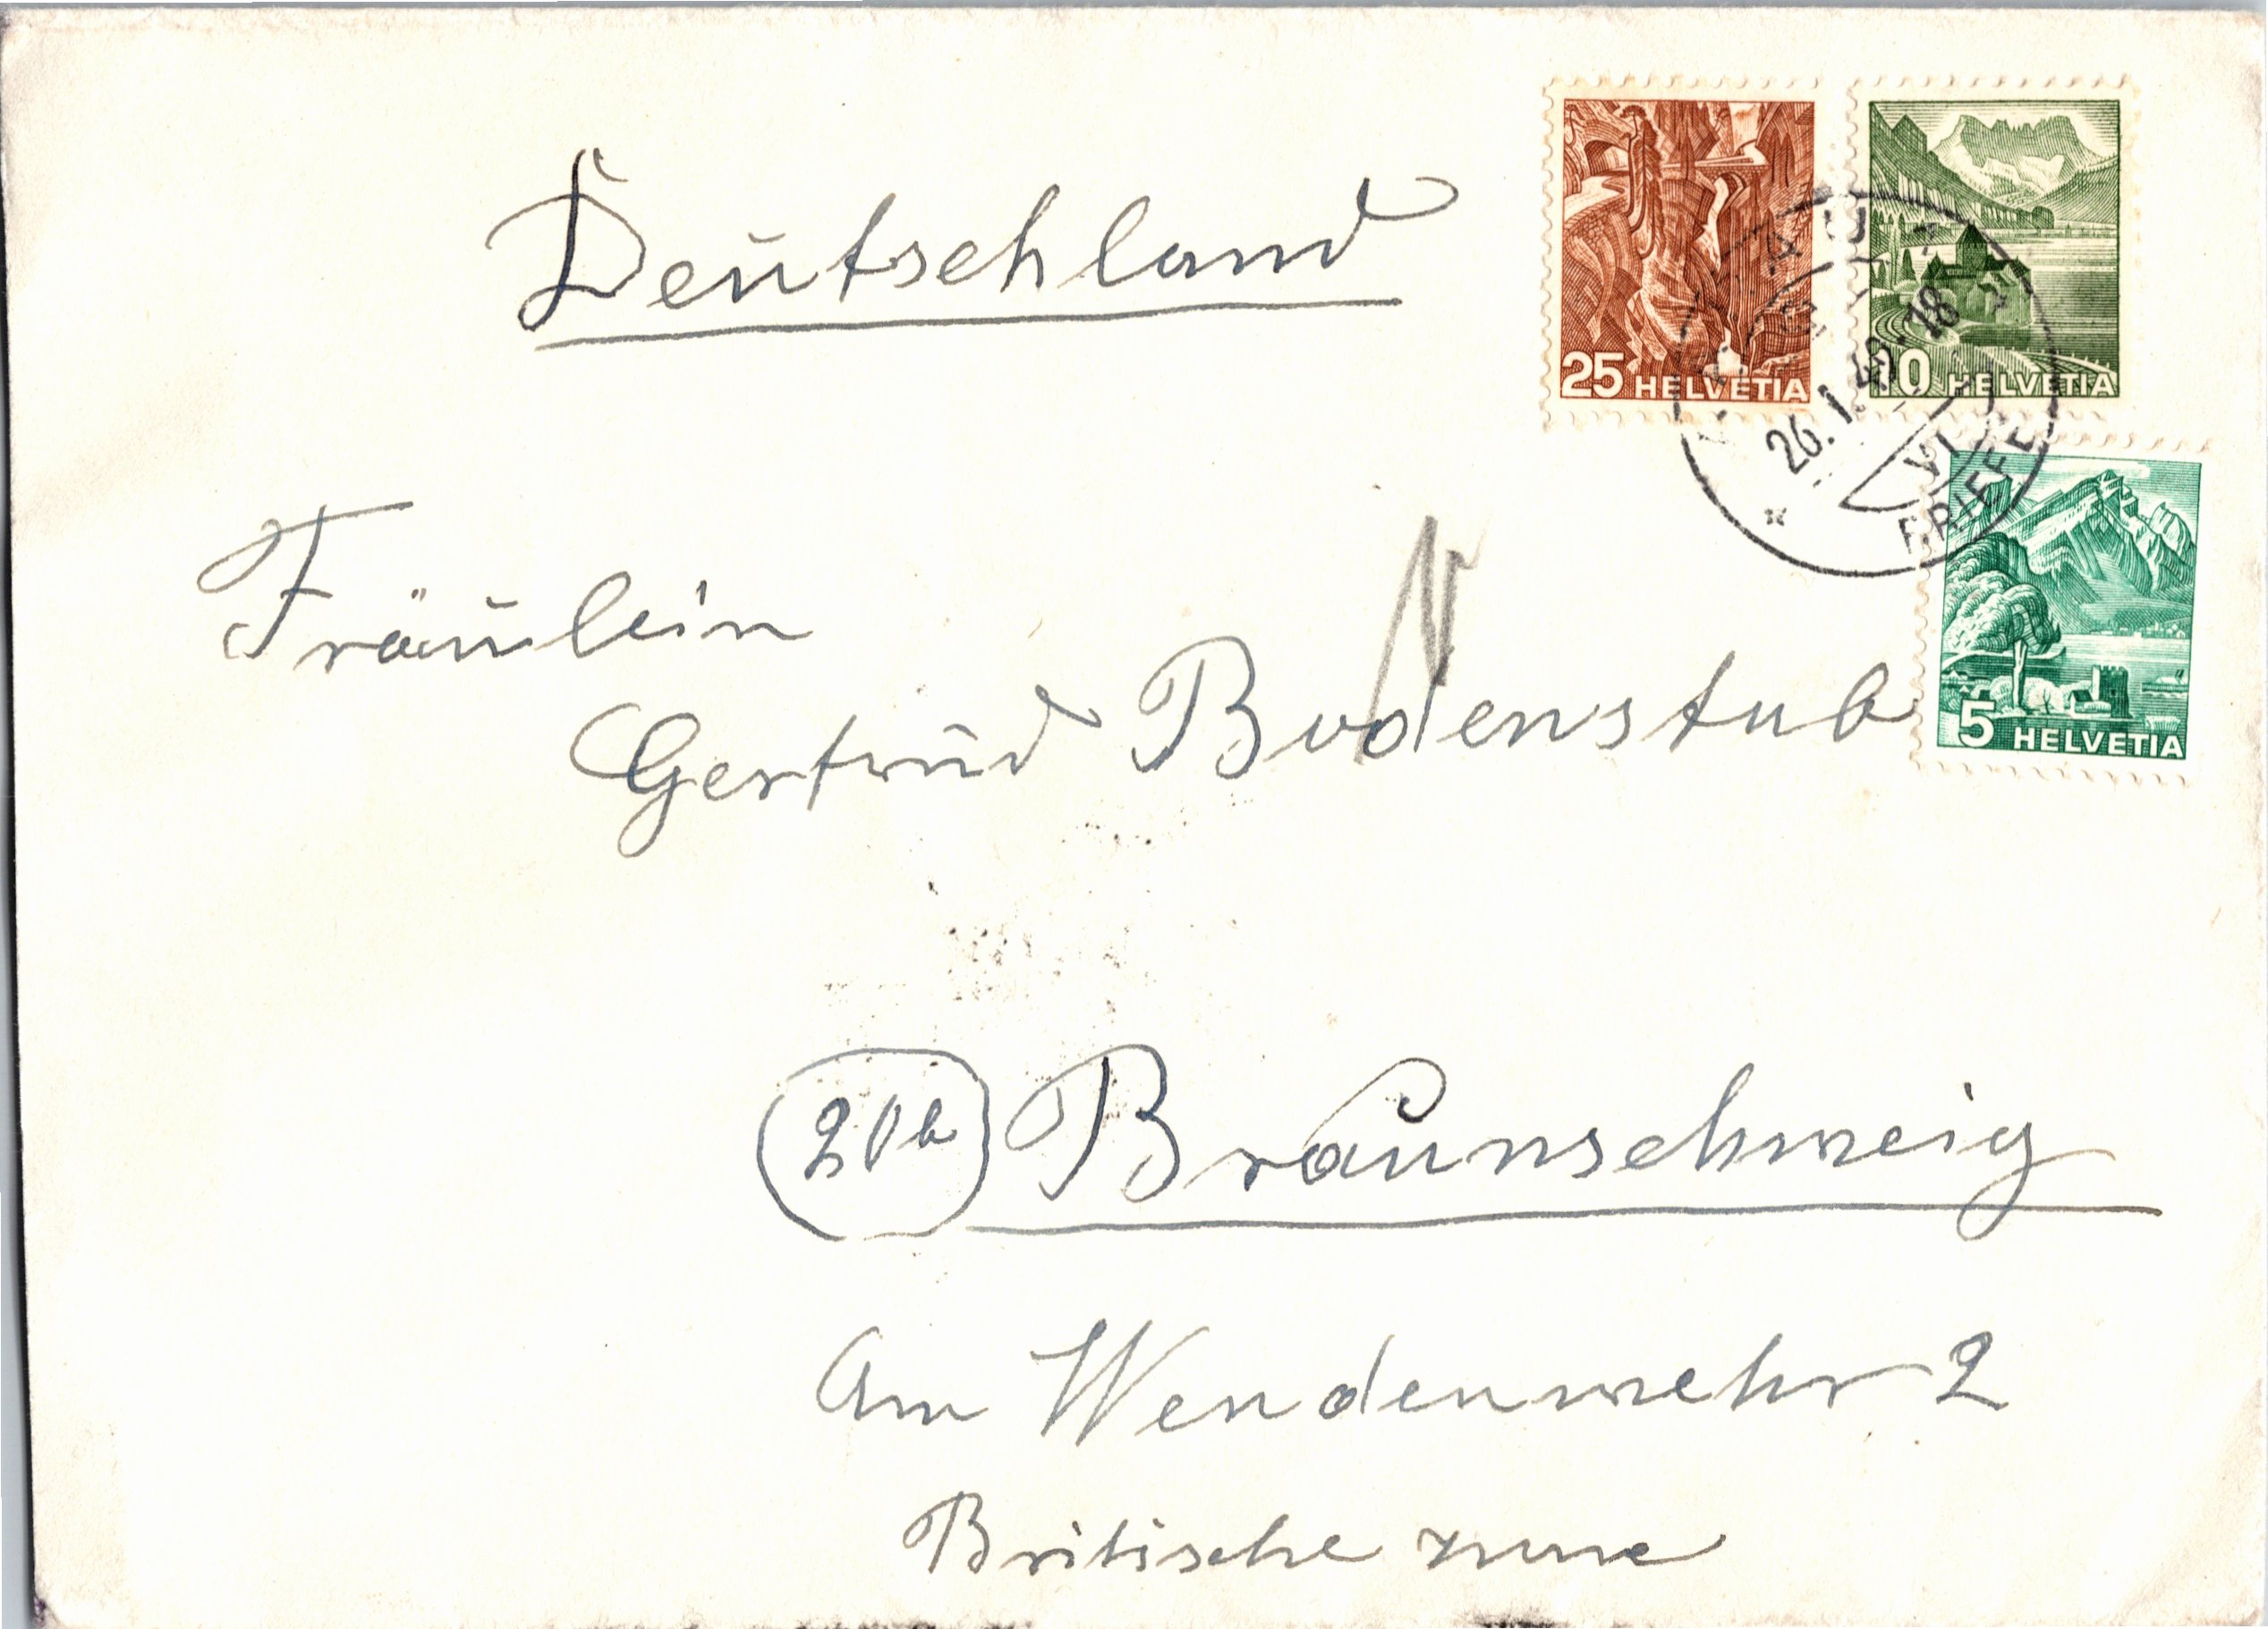 Deutschland
25 HELVETIA
10 HELVETIA
26.1.48.18
VI
BRIEFE
5 HELVETIA
Fräulein
Gertrud Bodenstab
20b Braunschweig
Am Wendenwehr 2
Britische Zone